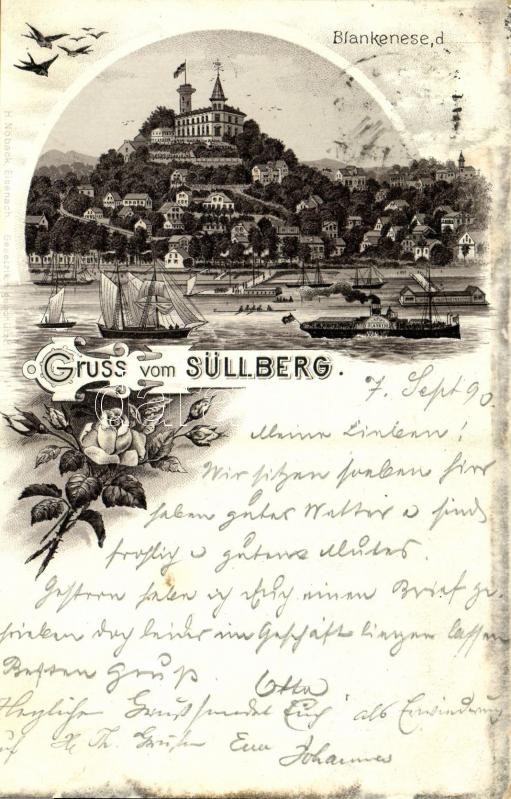 Blankenese, d
H. Noback Eisenach.
Gruss vom SÜLLBERG.
7. Sept 90.
Meine Lieben!
Wir sitzen soeben hier
haben gutes Wetter u sind
frohlig u gutens Mutes.
Gestern habe ich Euch einen Brief ge-
schrieben doch leider im Geschäft liegen lassen
Besten Gruß
Otto
Herzliche Gruss sendet Euch als Erwiederung
auf Grüße Euer Johannes